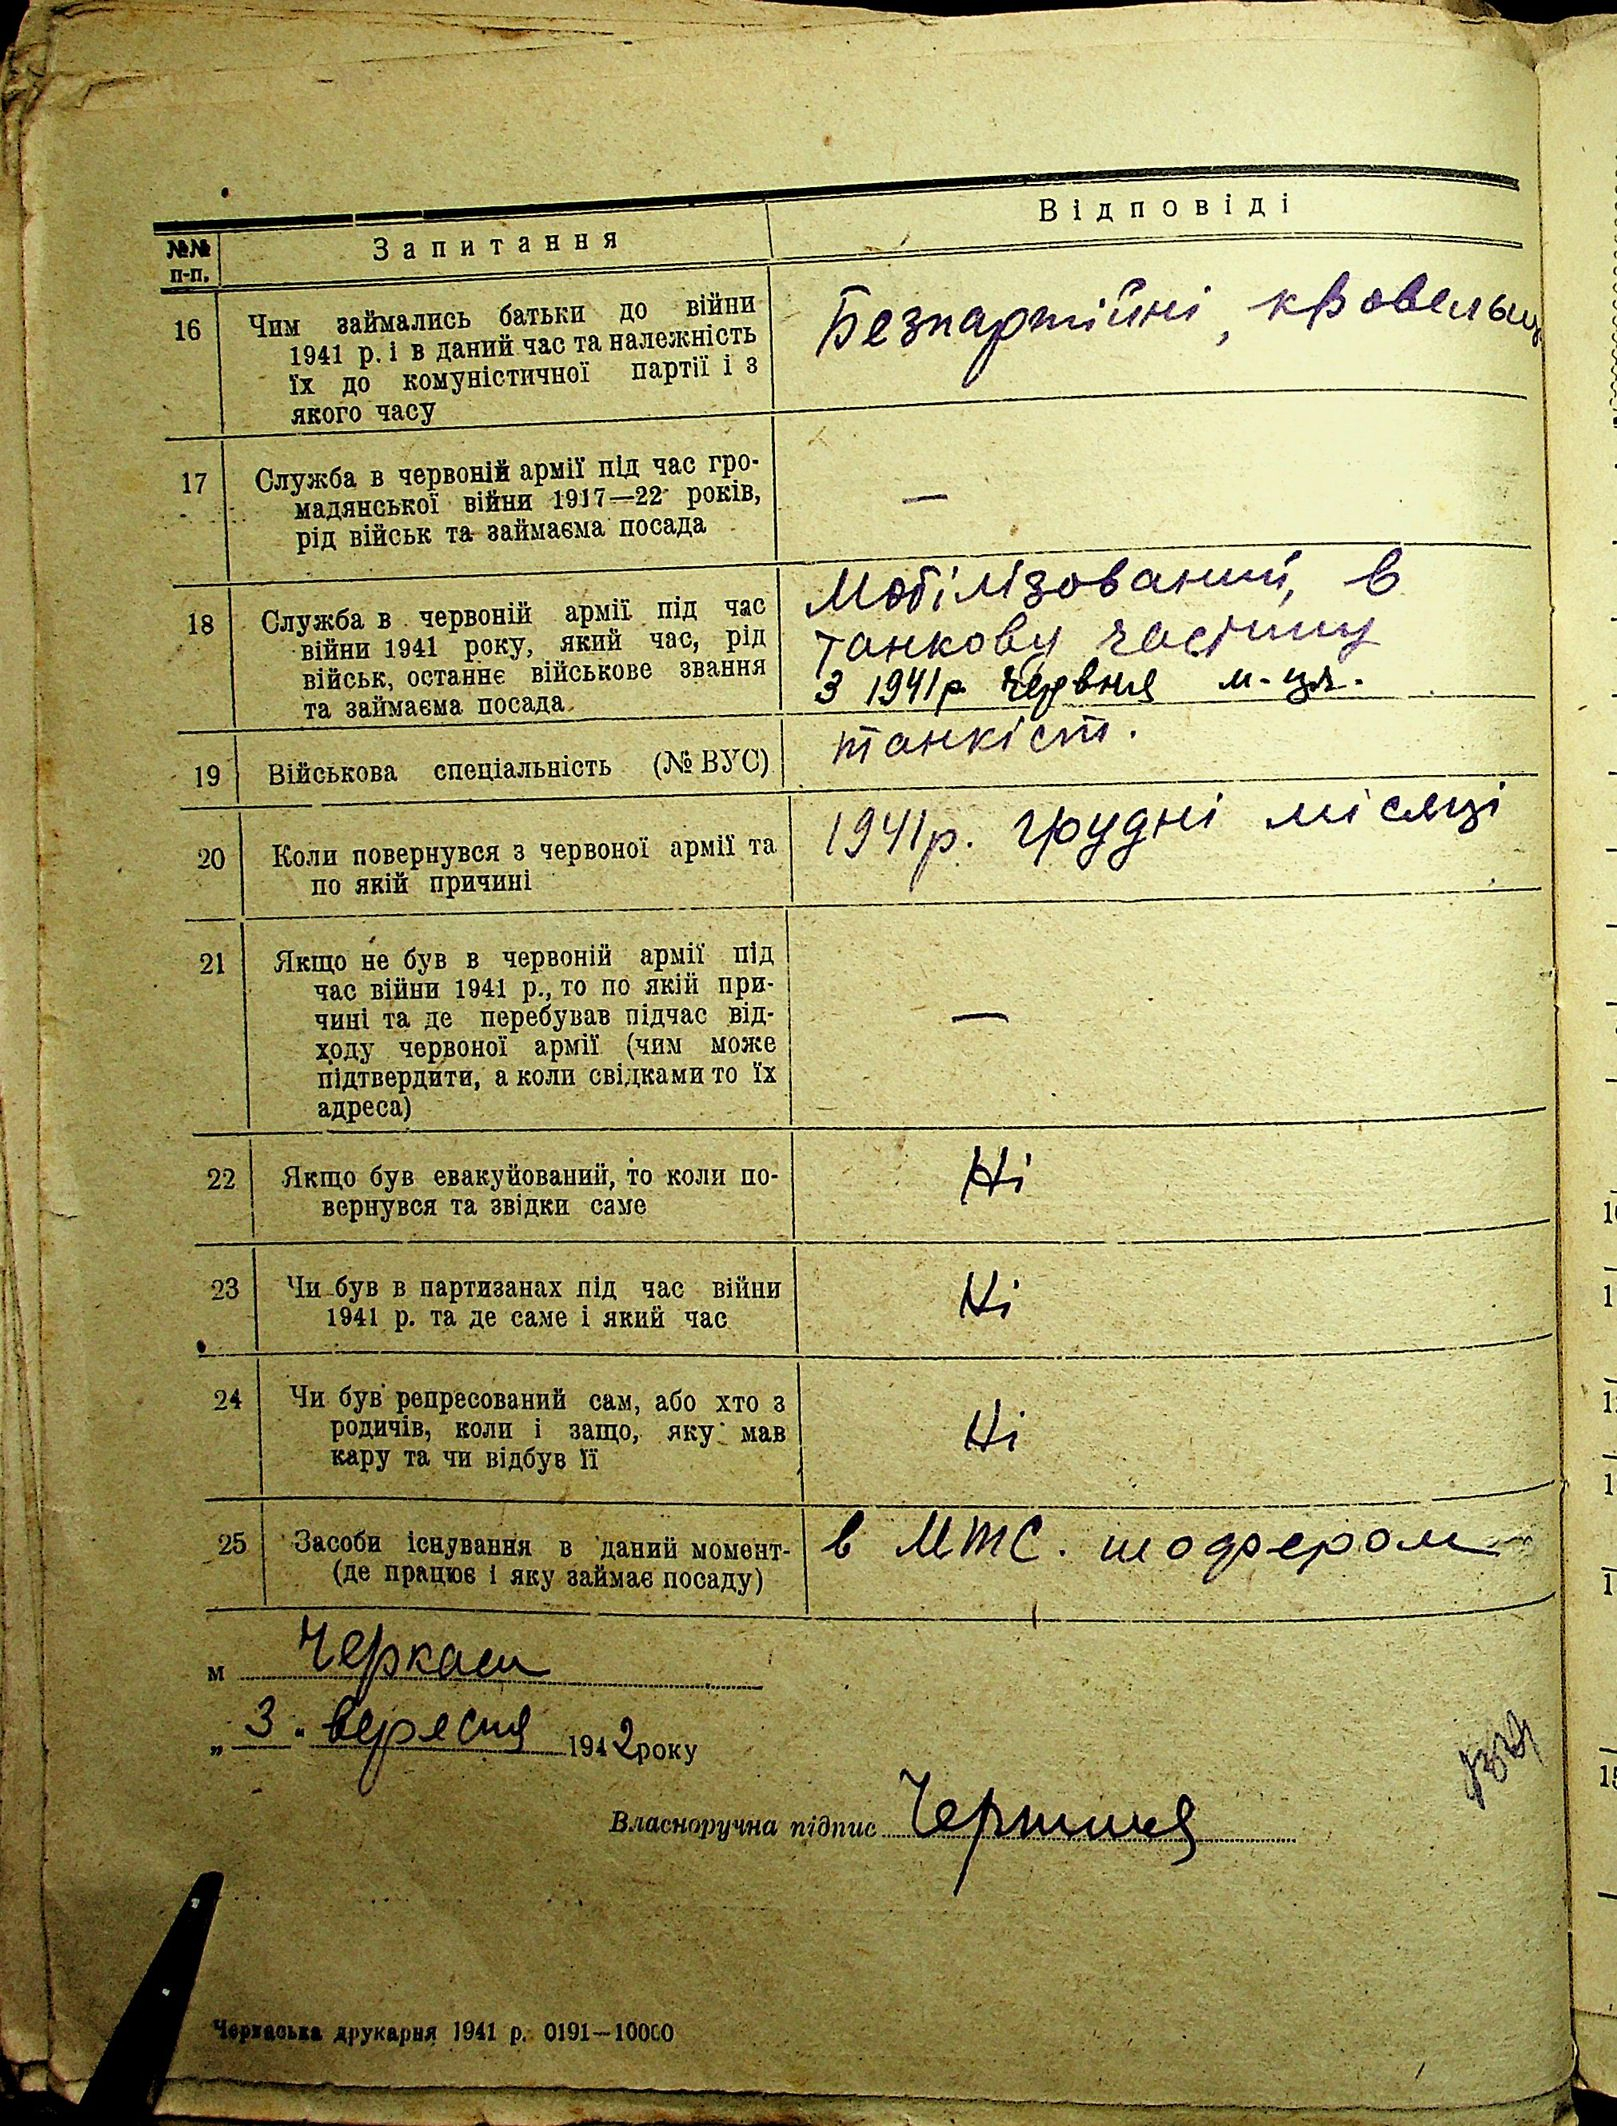 №№ п-п. Запитання Відповіді
16 Чим займались батьки до війни
1941 р. і в даний час та належність
їх до комуністичної партії і з
якого часу
Безпартійні, кровельщ
17 Служба в червоній армії під час гро-
мадянської війни 1917—22 років,
рід військ та займаєма посада
—
18 Служба в червоній армії під час
війни 1941 року, який час, рід
військ, останнє військове звання
та займаєма посада
Мобілізований, в
танкову частину
З 1941р червня м-ця.
19 Військова спеціальність (№ ВУС)
танкіст.
20 Коли повернувся з червоної армії та
по якій причині
1941р. грудні місяці
21 Якщо не був в червоній армії під
час війни 1941 р., то по якій при-
чині та де перебував підчас від-
ходу червоної армії (чим може
підтвердити, а коли свідками то їх
адреса)
—
22 Якщо був евакуйований, то коли по-
вернувся та звідки саме
Ні
23 Чи був в партизанах під час війни
1941 р. та де саме і який час
Ні
24 Чи був репресований сам, або хто з
родичів, коли і защо, яку мав
кару та чи відбув її
Ні
25 Засоби існування в даний момент-
(де працює і яку займає посаду)
в МТС. шофером
м Черкаси
„ 3 " вересня 1942 року
Власноручна підпис
Черкаська друкарня 1941 р. 0191—10000